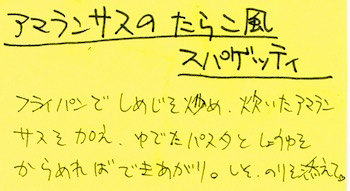 アマランサスの たらこ風
スパゲッティ
フライパンで しめじを炒め、炊いたアマラン
サスを加え、ゆでたパスタとしょうゆを
からめればできあがり。しそ、のりを添えて。